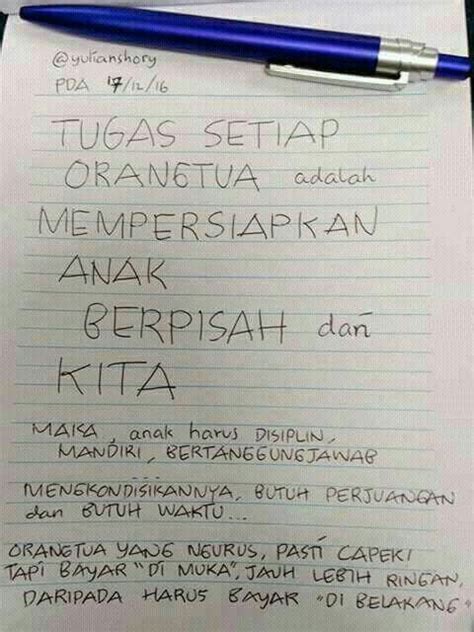 @yulianshory
PDA 17/12/16
TUGAS SETIAP
ORANGTUA adalah
MEMPERSIAPKAN
ANAK
BERPISAH dari
KITA
MAKA, anak harus DISIPLIN,
MANDIRI, BERTANGGUNGJAWAB
...
MENGKONDISIKANNYA, BUTUH PERJUANGAN
dan BUTUH WAKTU...
ORANGTUA YANG NGURUS, PASTI CAPEK!
TAPI BAYAR "DI MUKA", JAUH LEBIH RINGAN,
DARIPADA HARUS BAYAR "DI BELAKANG"